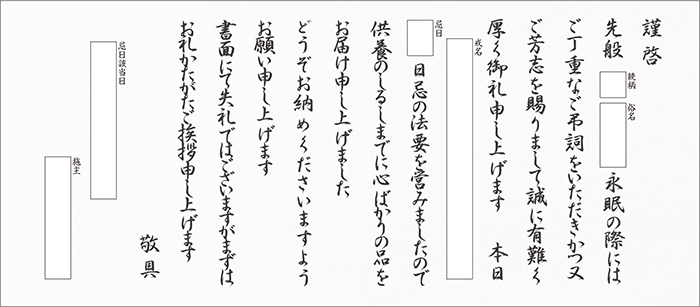 謹啓
先般 続柄 俗名 永眠の際には
ご丁重なご弔詞をいただきかつ又
ご芳志を賜りまして誠に有難く
厚く御礼申し上げます 本日
戒名
忌日 日忌の法要を営みましたので
供養のしるしまでに心ばかりの品を
お届け申し上げました
どうぞお納めくださいますよう
お願い申し上げます
書面にて失礼ではございますがまずは
お礼かたがたご挨拶申し上げます
敬具
忌日該当日
施主